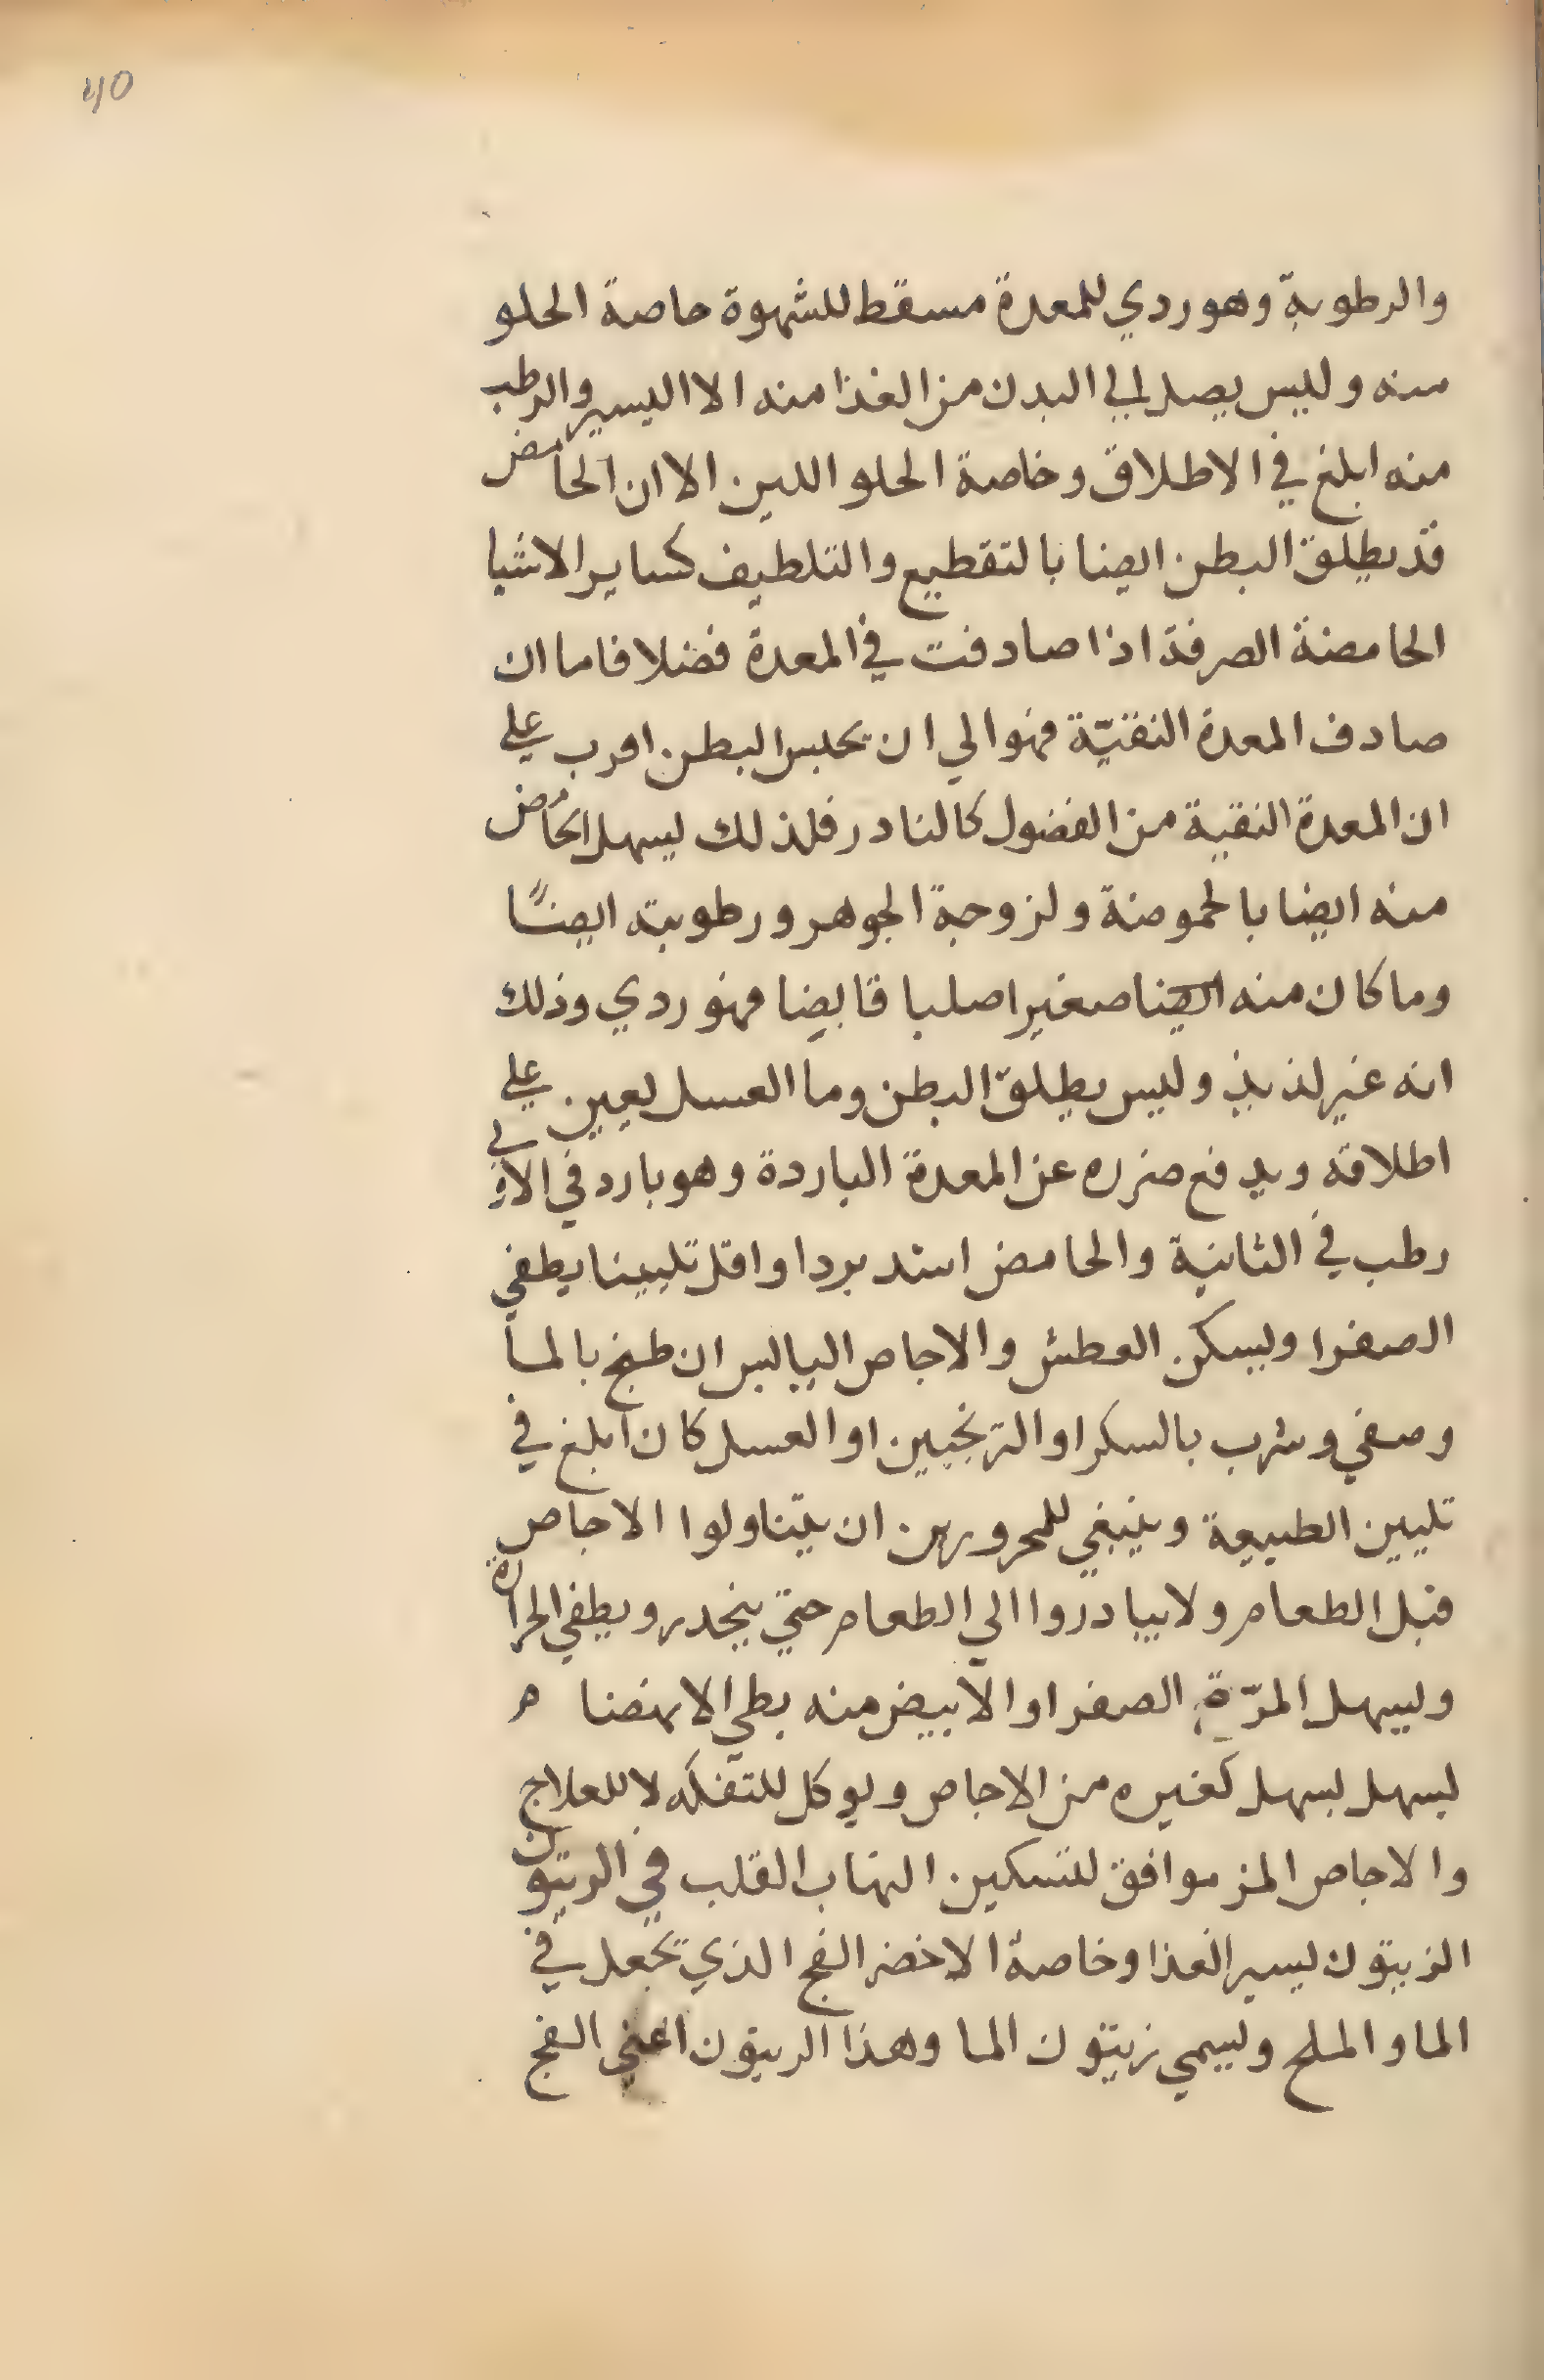 40
والرطوبة وهو ردي للمعدة مسقط للشهوة حاصة الحلو
منه وليس يصل الي البدن من الغذا منه الا اليسير والرطب
منه ابلغ في الاطلاق وخاصة الحلو اللين الا ان الحامض
قد يطلق البطن ايضا بالتقطيع والتلطيف كساير الاشيا
الحامضة الصرفة اذا صادفت في المعدة فضلا فاما ان
صادف المعدة النقيّة فهو الي ان يحبس البطن اقرب علي
ان المعدة النقية من الفضول كالنادر فلذلك يسهل الحامض
منه ايضا بالحموضة ولزوجة الجوهر ورطوبته ايضًا
وما كان منه ايضا صغيرا صلبا قابضا فهو ردي وذلك
انه غير لذيذ وليس يطلق البطن وما العسل يعين علي
اطلاقه ويدفع ضرره عن المعدة الباردة وهو بارد في الاولي
رطب في الثانية والحامض اشد بردا واقل تليينا يطفي
الصفرا ويسكن العطش والاجاص اليابس ان طبخ بالما
وصفي وشرب بالسكر او الترنجبين او العسل كان ابلغ في
تليين الطبيعة وينبغي للمحرورين ان يتناولوا الاجاص
قبل الطعام ولا يبادروا الي الطعام حتي ينحدر ويطفي الحرارة
ويسهل المرّة الصفرا والابيض منه بطي الانهضام
يسهل يسهل كغيره من الاجاص ويوكل للتفكه لا للعلاج
والاجاص المز موافق لتسكين التهاب القلب في الزيتون
الزيتون يسير الغذا وخاصة الاخضر الفج الذي يجعل في
الما والملح ويسمي زيتون الما وهذا الزيتون اعني الفج